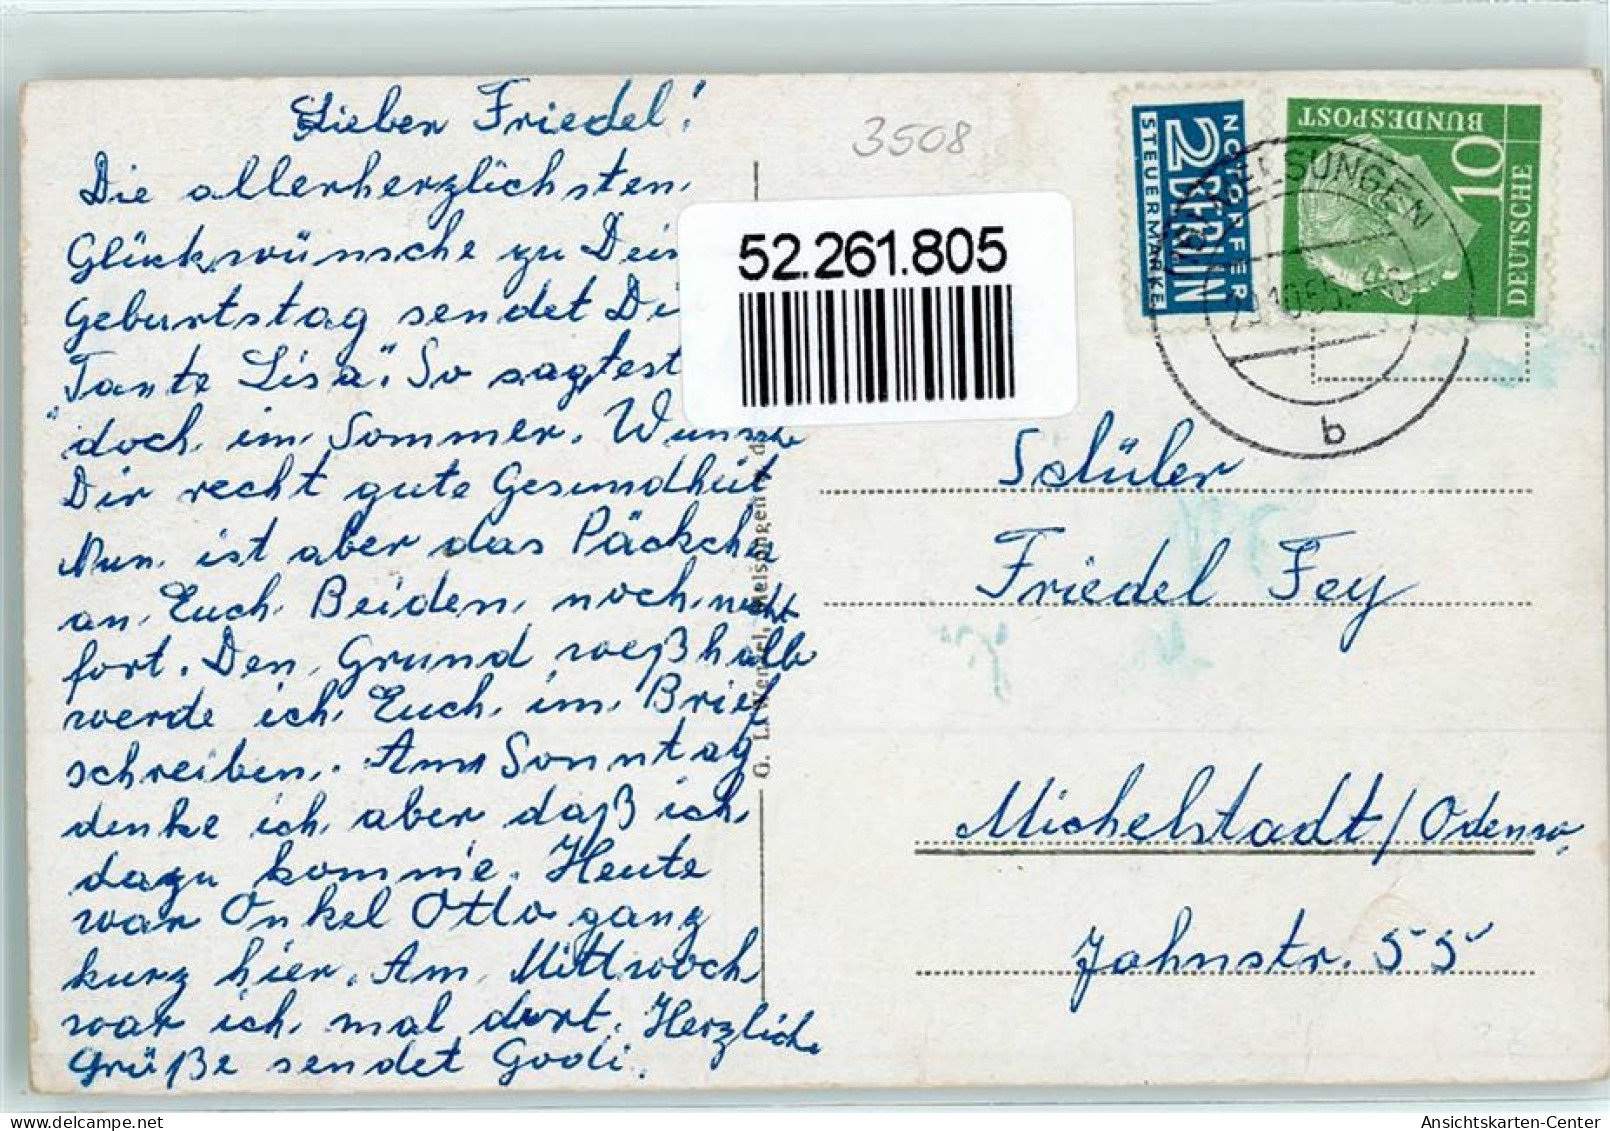 Lieber Friedel!
Die allerherzlichsten
Glückwünsche zu
Geburtstag sendet
"Tante Lisa". So sagtest
doch im Sommer. Wünsche
Dir recht gute Gesundheit
Nun ist aber das Päckchen
an Euch Beiden noch nicht
fort. Den Grund weßhalb
werde ich Euch im Brief
schreiben. Am Sonntag
denke ich aber daß ich
dazu komme. Heute
war Onkel Otto ganz
kurz hier. Am Mittwoch
war ich mal dort. Herzliche
Grüße sendet Godi.
3508
52.261.805
NOTOPFER
2 BERLIN
STEUERMARKE
10
DEUTSCHE
BUNDESPOST
MELSUNGEN
b
G. L. Wenzel, Melsungen
Schüler
Friedel Fey
Michelstadt/Odenw.
Jahnstr. 55
Ansichtskarten-Center